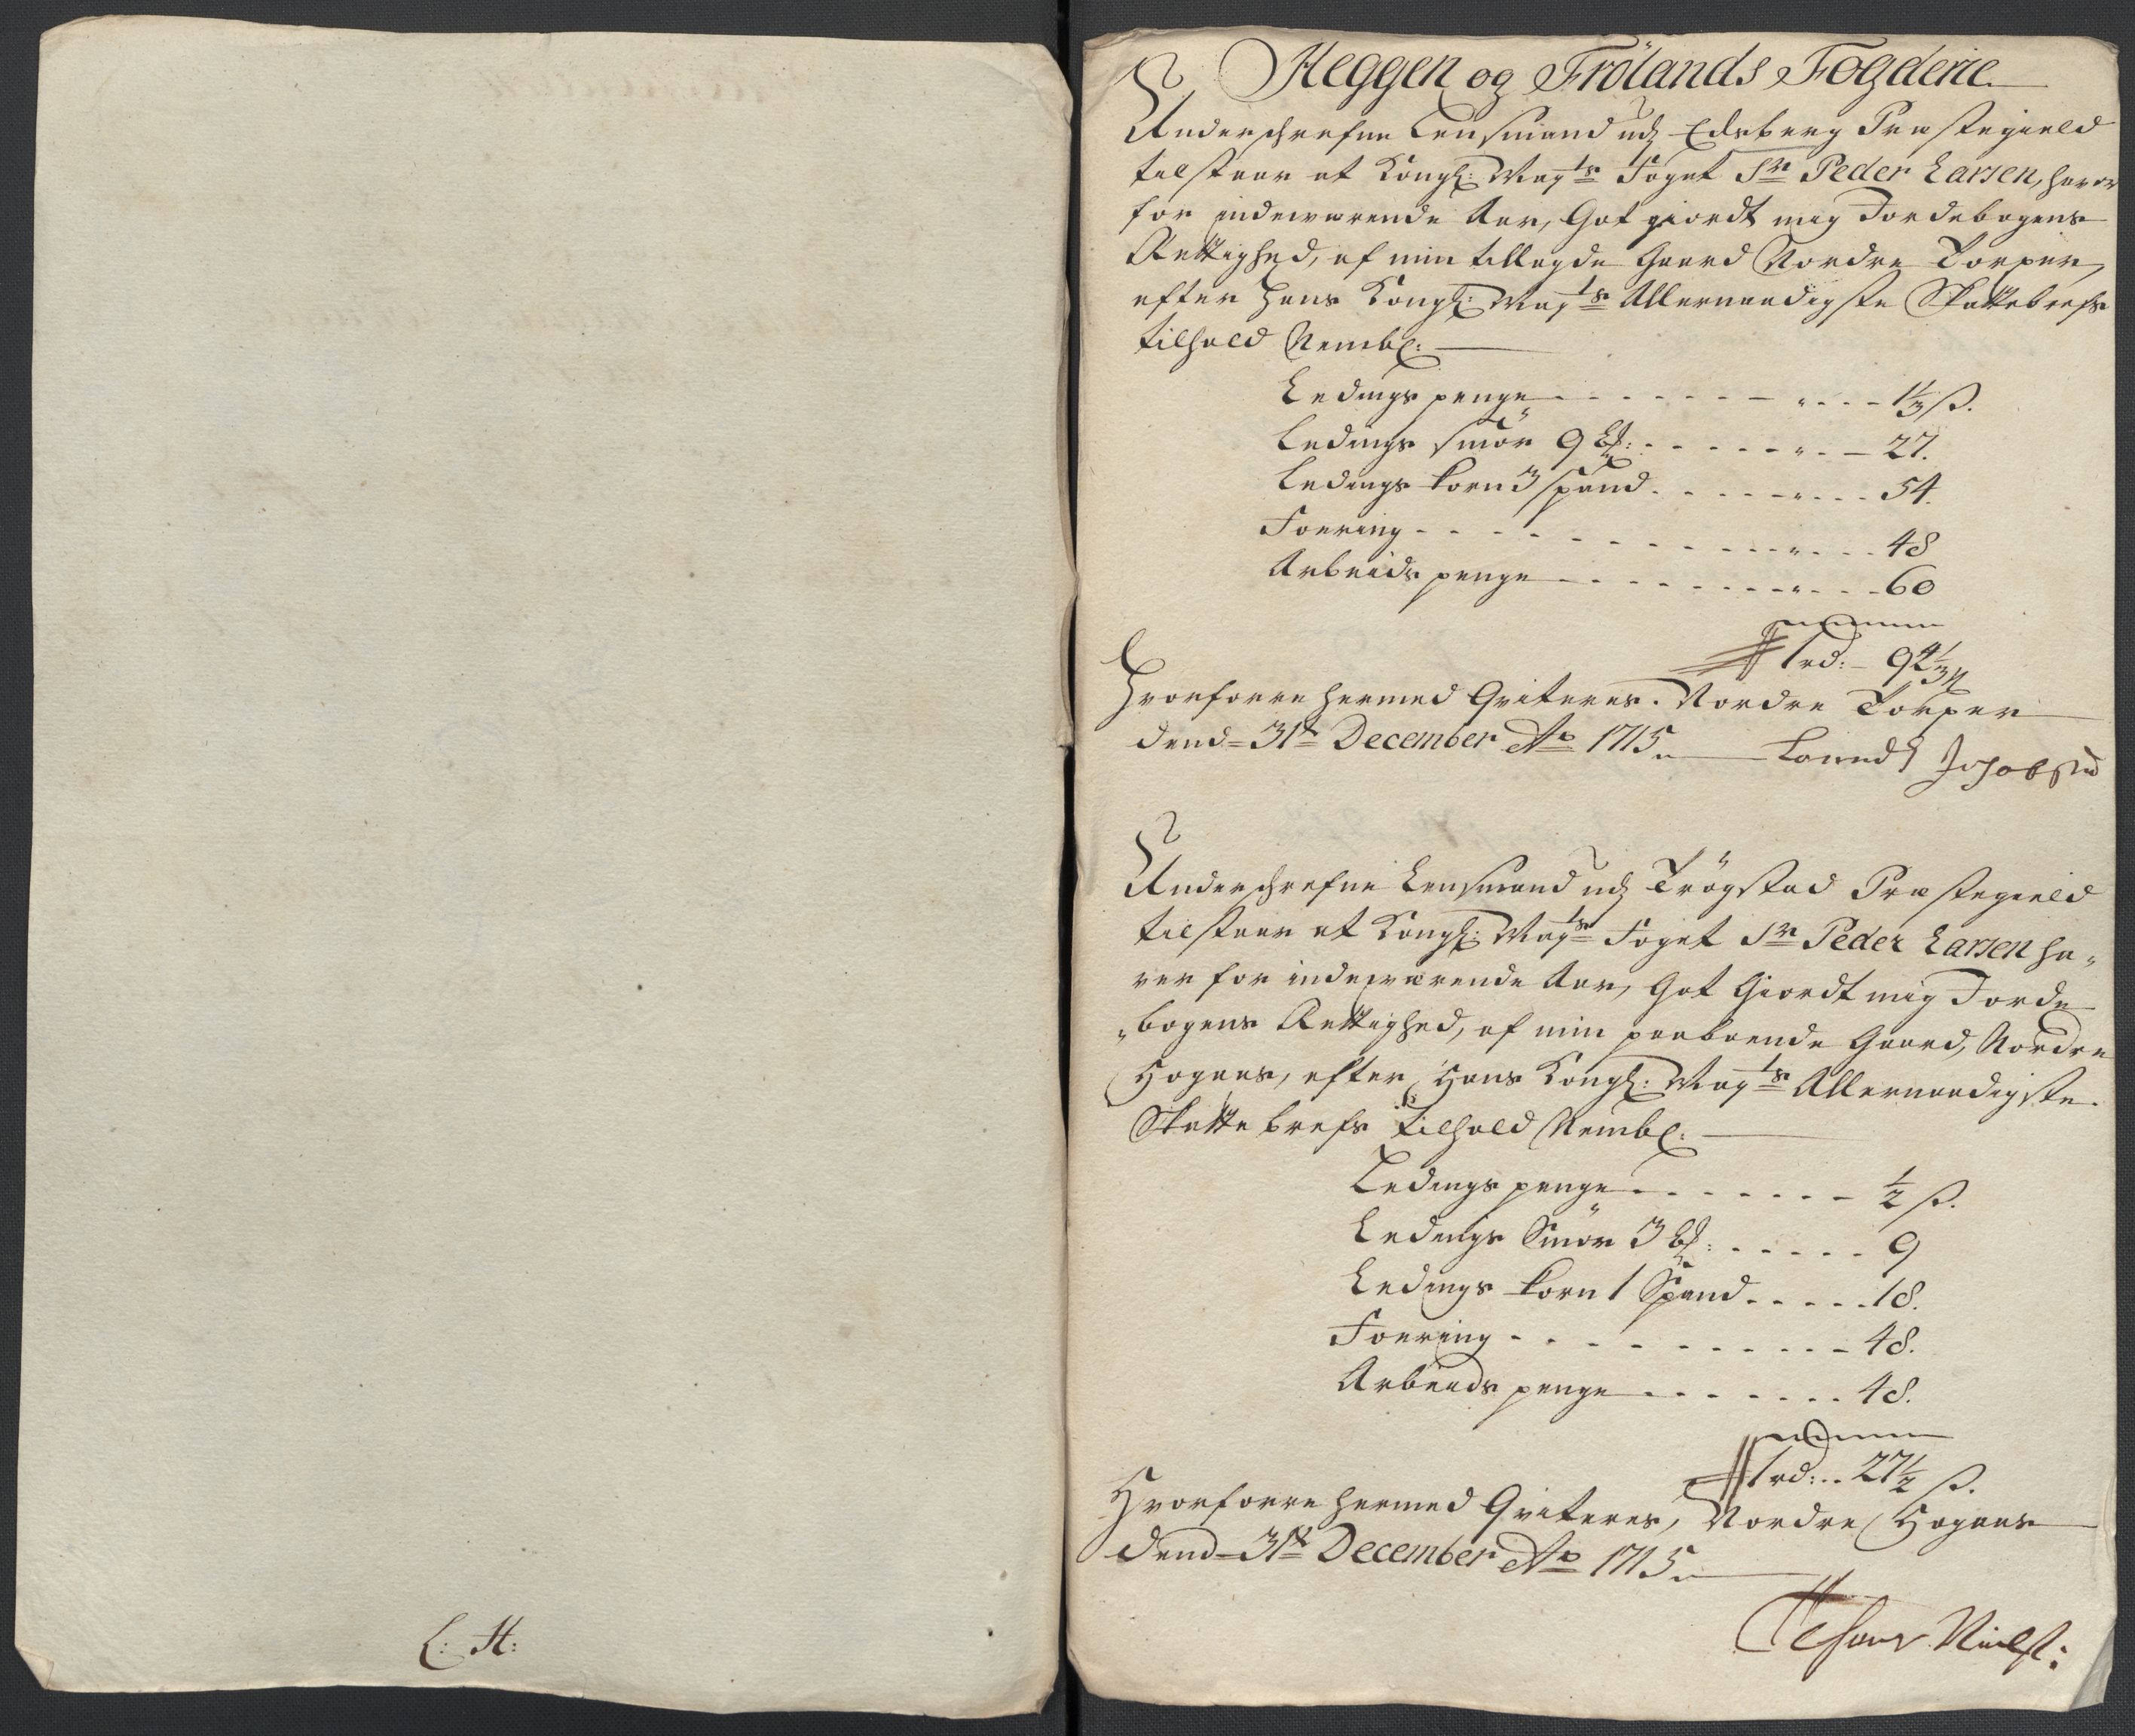 L: H:
Heggen og Frölands Fogderie
Underschrefne Lensmand udj Edsberg Præstegield
tilstaar at Kongl: Mayts Foget Sr Peder Larsen, haver
for indewærende Aar, Got giordt mig Jordebogens
Rettighed, af min tillagde Gaard Nordre Torper,
efter Hans Kongl: Mayts Allernaadigste Skattebrefs
tilhold Nembl:
Ledings penge - - - - - - - " - - - - 1 1/3 ß.
Ledings smör 9 - - - - - - " - - 27.
Ledings korn 3 spand - - - - - " - - - 54.
Foering - - - - - - - - - - - " - - - 48
Arbeids penge - - - - - - - - " - - - 60
1 rd: - 94 1/3 ß
Hvorforre hermed Qviteres. Nordre Torper
dend 31te December Ao 1715.
Underschrefne Lensmand udj Trögstad Præstegield
tilstaar at Kongl: Mayts Foget Sr Peder Larsen ha„
ver for indewærende Aar, Got Giordt mig Jorde
„bogens Rettighed, af min paaboende Gaard, Nordre
Hogaas, efter Hans Kongl: Mayts Allernaadigste
Skatte brefs tilhold Nembl:
Ledings penge - - - - - - - 1/2 ß.
Ledings Smör 3 - - - - - 9
Ledings korn 1 Spand - - - - - 18.
Foering - - - - - - - - - - 48.
Arbeids penge - - - - - - - 48.
1 rd: - - 27 1/2 ß.
Hvorforre hermed Qviteres, Nordre Hogaas
dend 31te December Ao 1715.